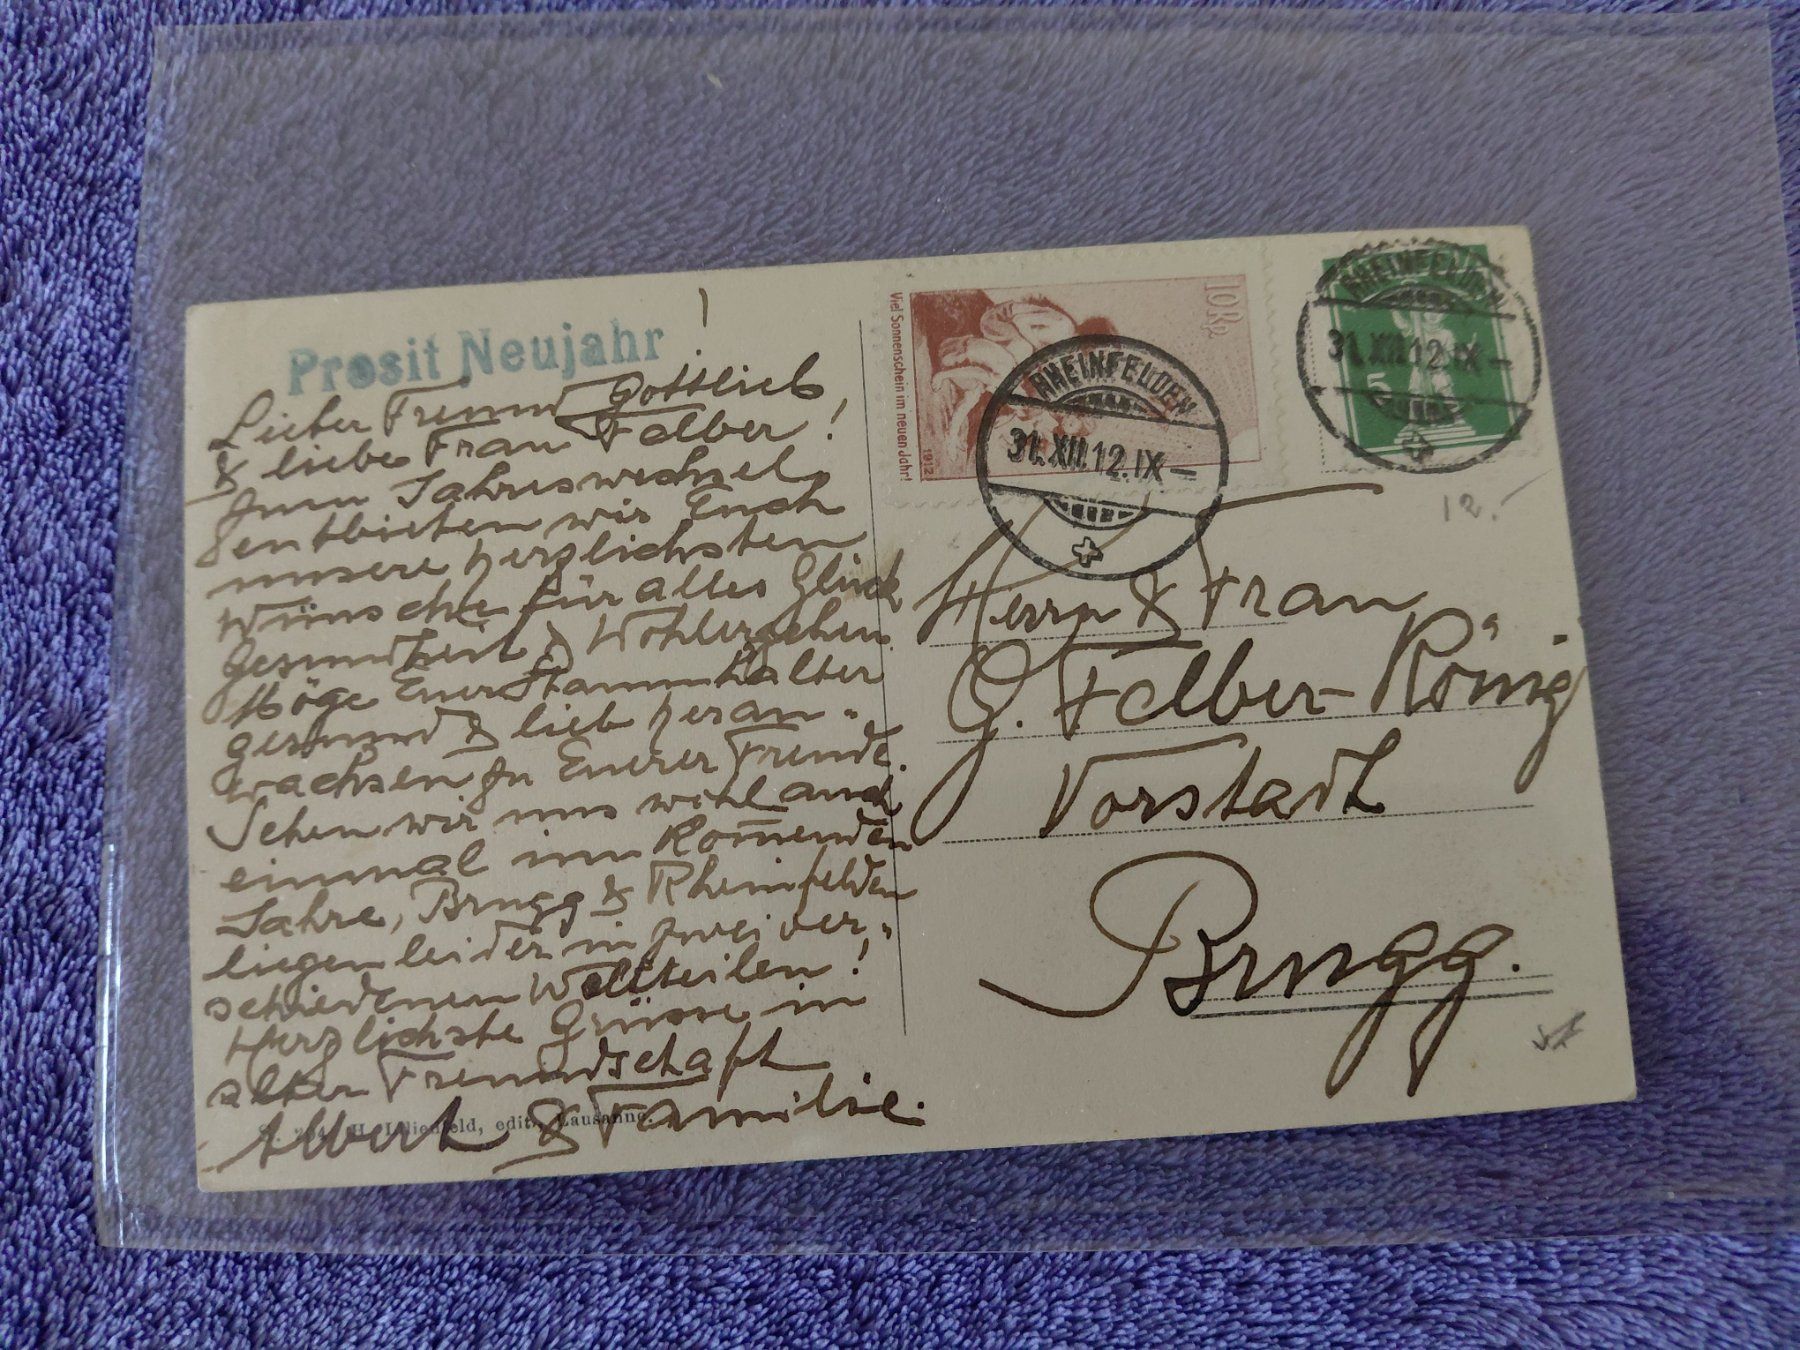 Prosit Neujahr
Lieber Freund Gottlieb
& liebe Frau Felber!
Zum Jahreswechsel
entbieten wir Euch
unsere herzlichsten
Wünsche für alles Glück
Gesundheit & Wohlergehen.
Möge Euer Stammhalter
gesund & lieb heran-
wachsen zu Euerer Freude.
Sehen wir uns wohl auch
einmal im Kom̅enden
Jahre, Brugg & Rheinfelden
liegen leider in zwei ver-
schiedenen Weltteilen!
Herzlichste Grüsse in
alter Freundschaft
Albert & Familie.
H. Lilienfeld, edit., Lausanne.
Viel Sonnenschein im neuen Jahr!
1912
10 Rp
RHEINFELDEN
31.XII.12.IX–
RHEINFELDEN
31.XII.12.IX–
5
12.–
Herrn & Frau
G. Felber-König
Vorstadt
Brugg.